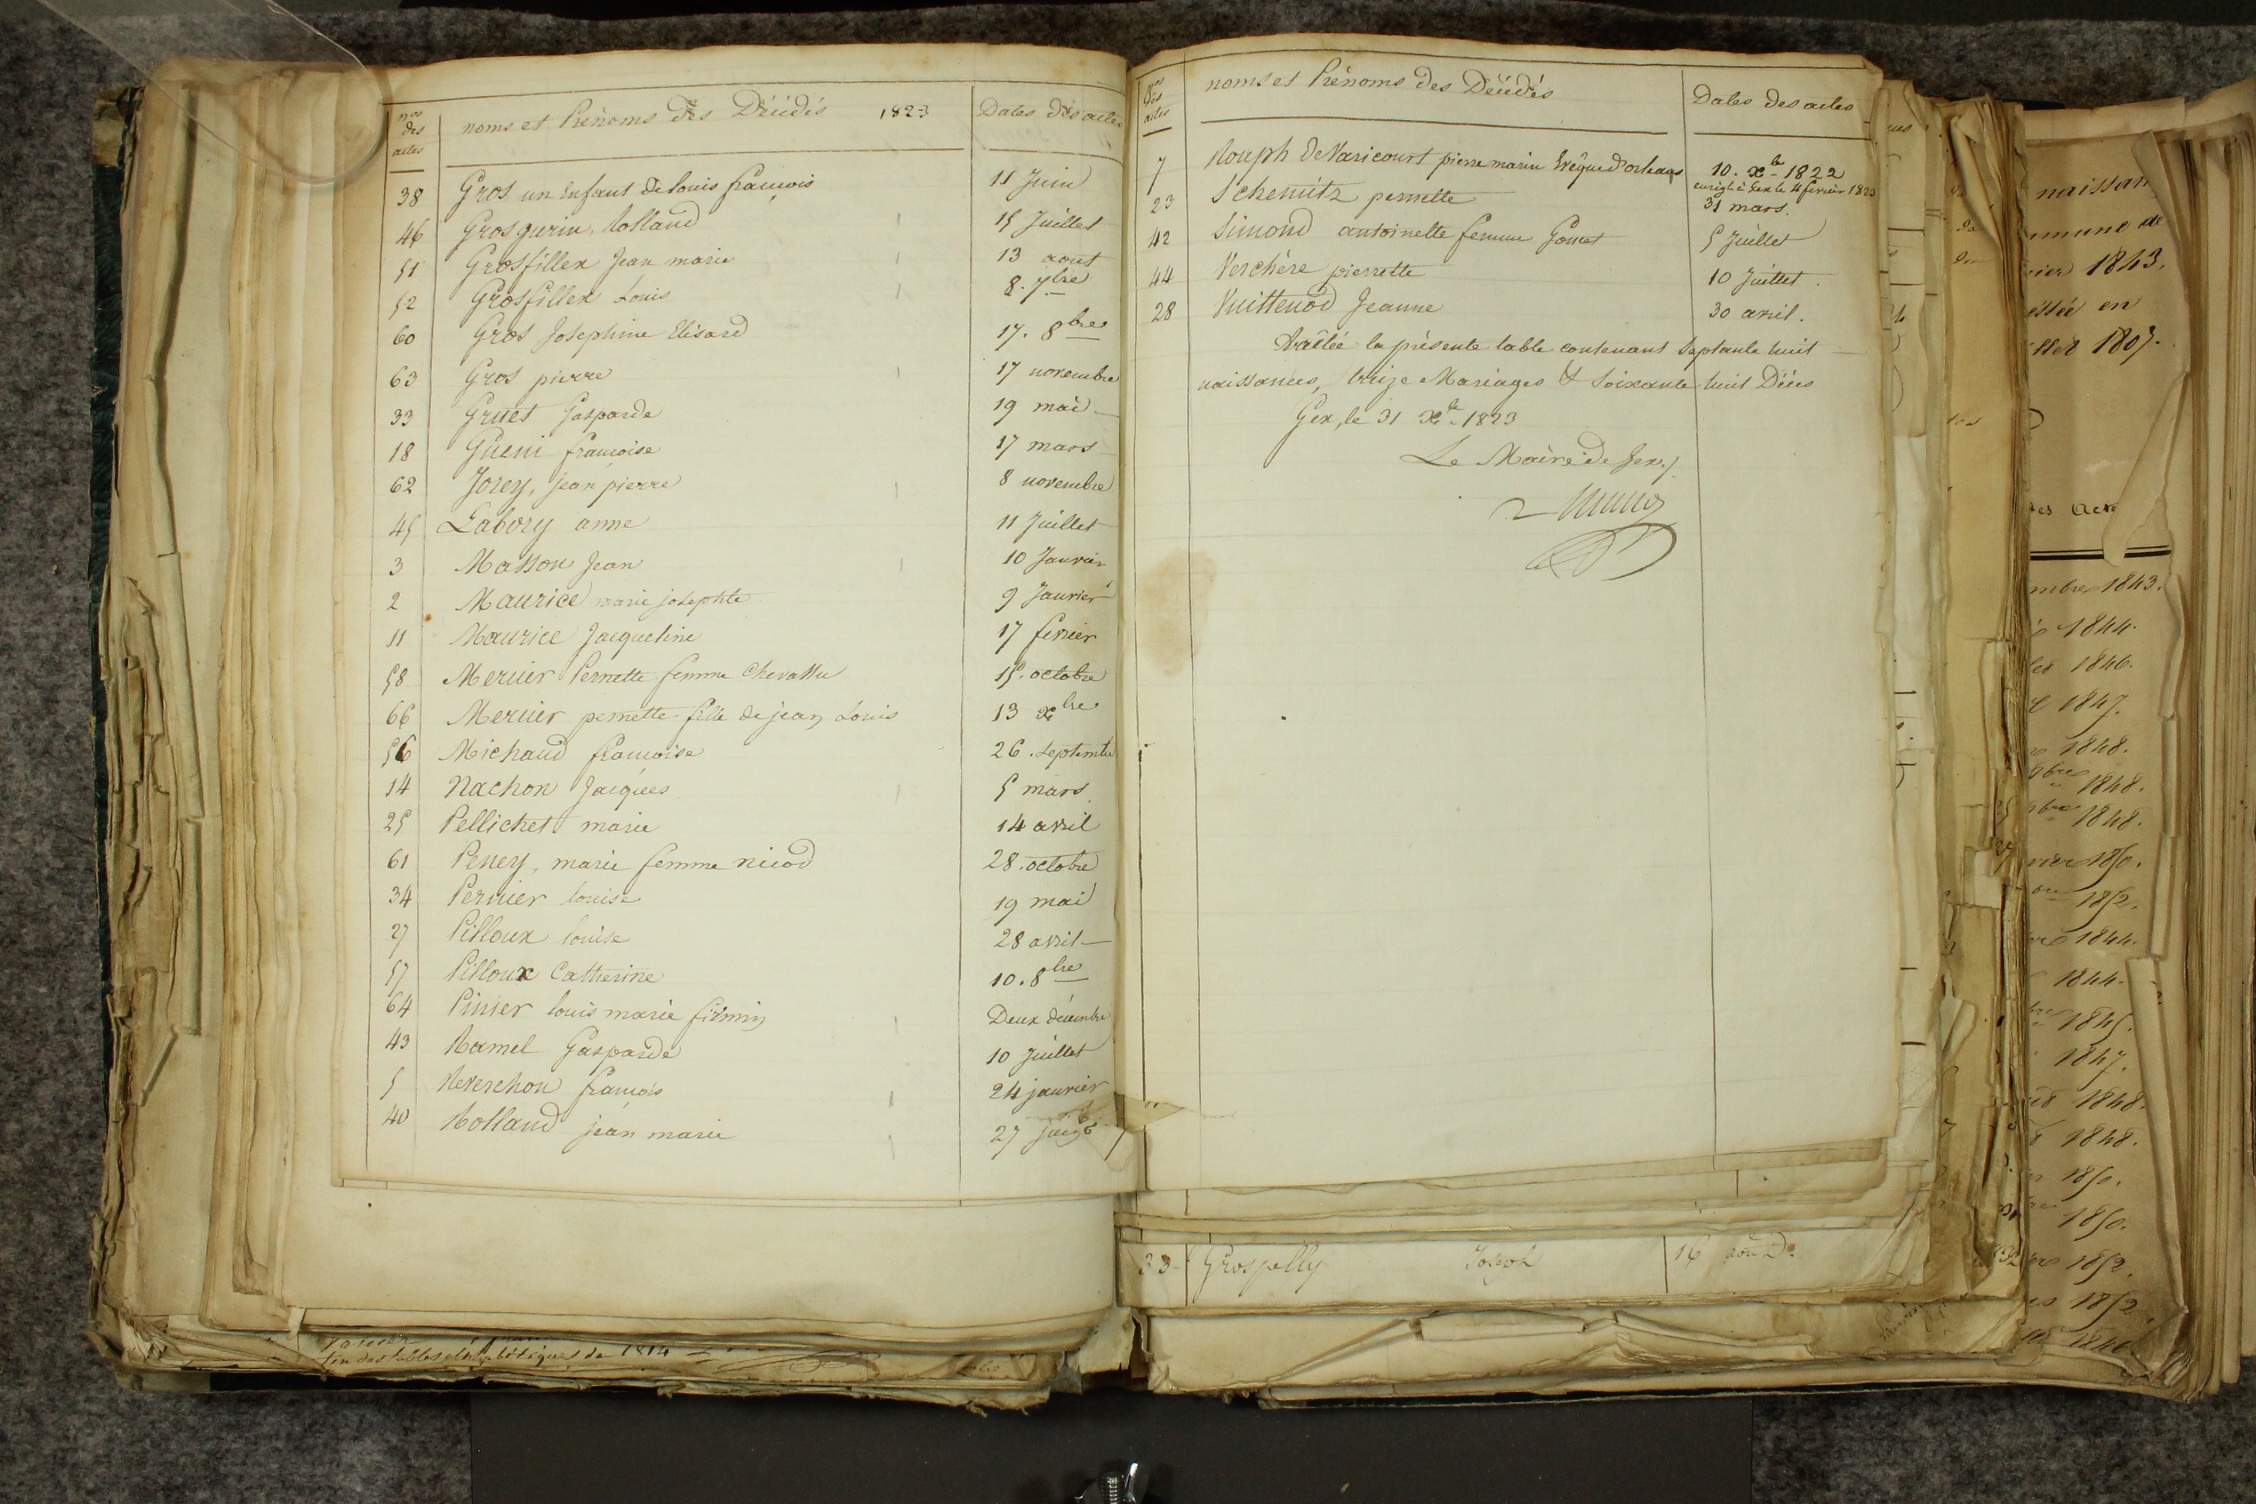 nos des actes noms et Prénoms des Décédés 1823 Dates des actes
38 Gros un enfant de louis françois 11 Juin
46 Grosgurin, Rolland 15 Juillet
51 Grosfillex Jean marie 13 aout
52 Grosfillex Louis 8. 7bre
60 Gros Josephine Elisard 17. 8bre
63 Gros pierre 17 novembre
33 Gruet Gasparde 19 mai
18 Gueni françoise 17 mars
62 Jorey, jean pierre 8 novembre
45 Labory anne 11 Juillet
3 Masson Jean 10 Janvier
2 Maurice marie josephte 9 Janvier
11 Maurice Jacqueline 17 fevrier
58 Mercier Pernette femme Chevassu 15. octobre
66 Mercier pernette fille de jean Louis 13 xbre
56 Michaud françoise 26. septembre
14 Nachon Jacques 5 mars
25 Pellichet marie 14 avril
61 Peney, marie femme nicod 28. octobre
34 Perrier louise 19 mai
27 Pilloux louise 28 avril
57 Pilloux Catherine 10. 8bre
64 Pinier louis marie firmin Deux décembre
43 Ramel Gasparde 10 Juillet
5 Reverchon françois 24 janvier
40 Rolland jean marie 27 juin
nos des actes noms et Prénoms des Décédés Dates des actes
7 Rouph de Varicourt pierre marin Evêque d'orleans 10. xbre 1822
enrigt à Gex le 4 fevrier 1823
23 Schemitz pernette 31 mars.
42 Simond antoinette femme Gomet 5 Juillet
44 Verchère pierrette 10 Juillet.
28 Vuittenod Jeanne 30 avril.
Arrêtée la présente table contenant septante huit
naissances, treize Mariages & soixante huit Décès
Gex, le 31 xbre 1823
Le Maire de Gex,
33 Grospelly Joseph 16 Do
fin des tables alphabétiques de 1814
naissan
1843.
en
1807.
mbre 1843.
1844.
1846.
1847.
1848.
1848.
1848.
1850.
1852.
1844.
1844.
1845.
1847.
1848.
1848.
1850.
1850.
1852.
1852.